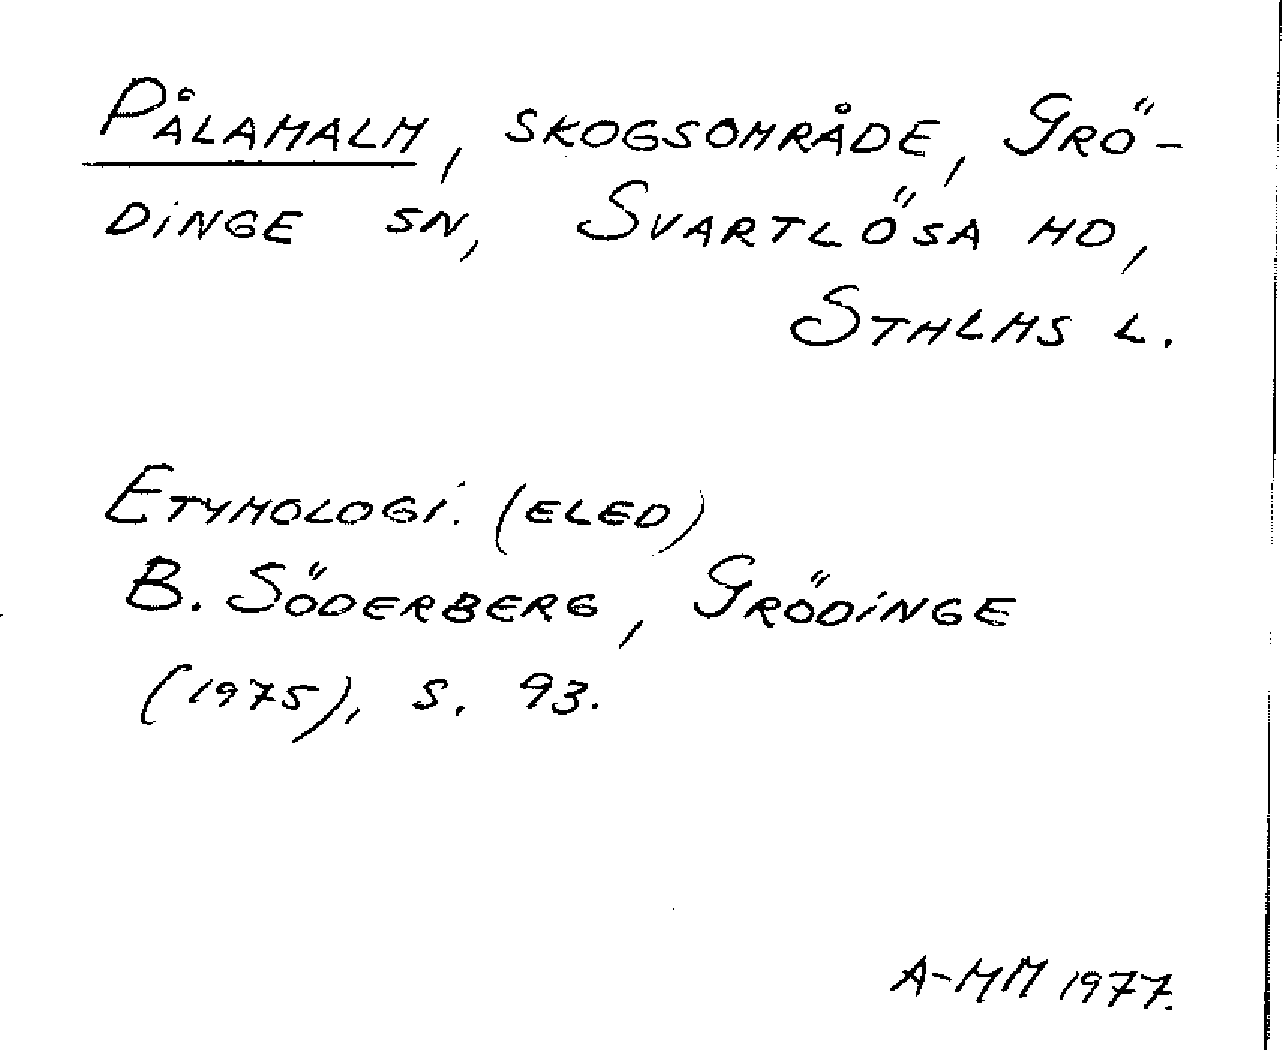 PÅLAMALM, SKOGSOMRÅDE, GRÖ-
DINGE SN, SVARTLÖSA HD,
STHLMS L.
ETYMOLOGI. (ELED)
B. SÖDERBERG, GRÖDINGE
(1975), S. 93.
A-MM 1977.